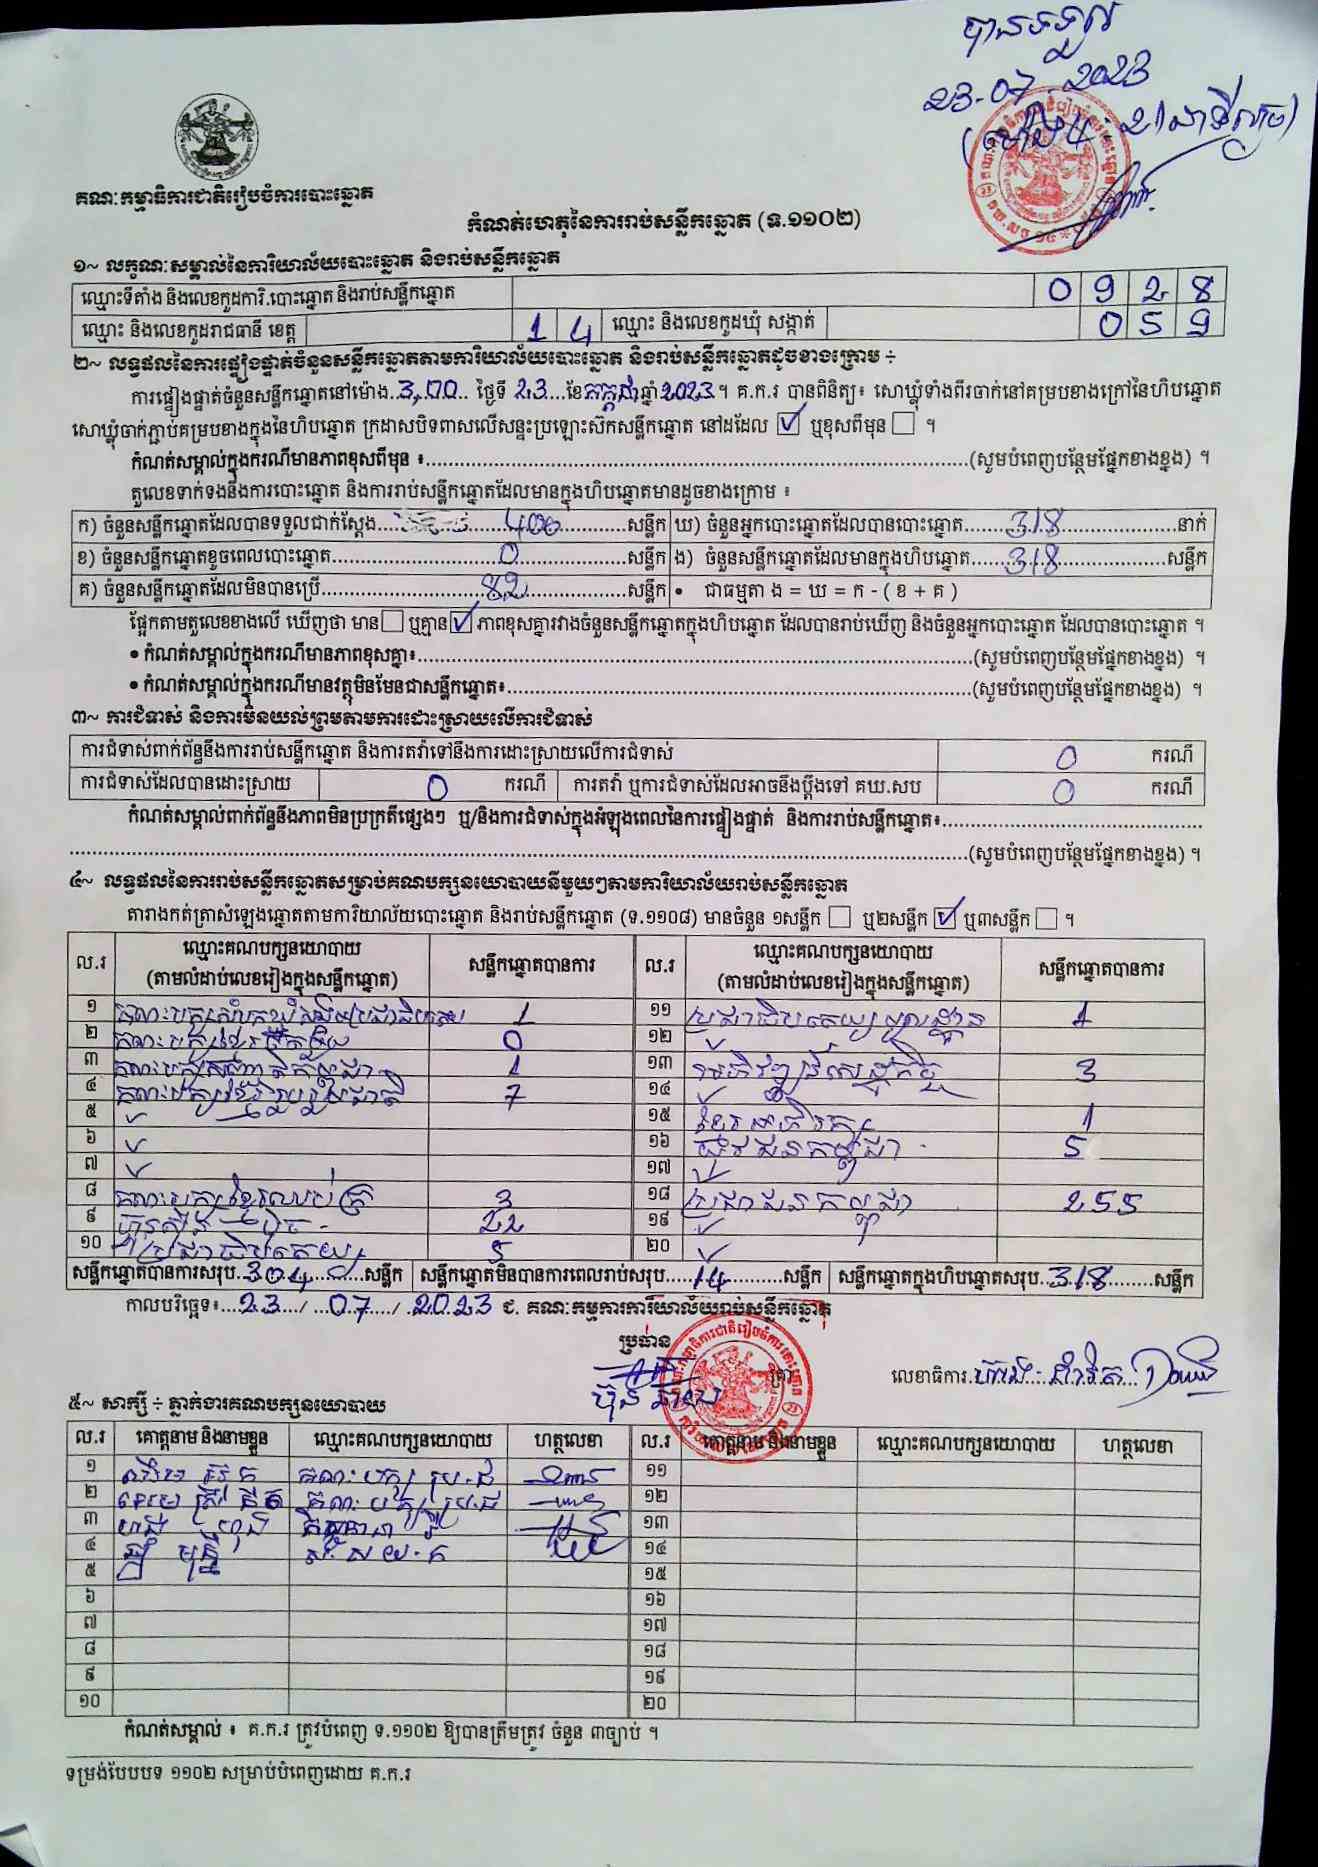 បានទទួល
23-07-2023
គណៈកម្មាធិការជាតិរៀបចំការបោះឆ្នោត
កំណត់ហេតុនៃការរាប់សន្លឹកឆ្នោត (ទ.១១០២)
១~ លក្ខណៈសម្គាល់នៃការិយាល័យបោះឆ្នោត និងរាប់សន្លឹកឆ្នោត
ឈ្មោះទីតាំង និងលេខកូដការិ.បោះឆ្នោត និងរាប់សន្លឹកឆ្នោត 0928
ឈ្មោះ និងលេខកូដរាជធានី ខេត្ត 14 ឈ្មោះ និងលេខកូដឃុំ សង្កាត់ 059
២~ លទ្ធផលនៃការផ្ទៀងផ្ទាត់ចំនួនសន្លឹកឆ្នោតតាមការិយាល័យបោះឆ្នោត និងរាប់សន្លឹកឆ្នោតដូចខាងក្រោម ÷
ការផ្ទៀងផ្ទាត់ចំនួនសន្លឹកឆ្នោតនៅម៉ោង..3,00.. ថ្ងៃទី 23...ខែកក្កដាឆ្នាំ2023។ គ.ក.រ បានពិនិត្យ៖ សោឃ្លុំទាំងពីរចាក់នៅគម្របខាងក្រៅនៃហិបឆ្នោត
សោឃ្លុំចាក់ភ្ជាប់គម្របខាងក្នុងនៃហិបឆ្នោត ក្រដាសបិទពាសលើសន្ទះប្រឡោះស៊កសន្លឹកឆ្នោត នៅដដែល ☑ ឬខុសពីមុន ☐ ។
កំណត់សម្គាល់ក្នុងករណីមានភាពខុសពីមុន ៖...(សូមបំពេញបន្ថែមផ្នែកខាងខ្នង) ។
តួលេខទាក់ទងនឹងការបោះឆ្នោត និងការរាប់សន្លឹកឆ្នោតដែលមានក្នុងហិបឆ្នោតមានដូចខាងក្រោម ៖
ក) ចំនួនសន្លឹកឆ្នោតដែលបានទទួលជាក់ស្តែង... 400...សន្លឹក ឃ) ចំនួនអ្នកបោះឆ្នោតដែលបានបោះឆ្នោត...318...នាក់
ខ) ចំនួនសន្លឹកឆ្នោតខូចពេលបោះឆ្នោត...0...សន្លឹក ង) ចំនួនសន្លឹកឆ្នោតដែលមានក្នុងហិបឆ្នោត...318...សន្លឹក
គ) ចំនួនសន្លឹកឆ្នោតដែលមិនបានប្រើ...82...សន្លឹក • ជាធម្មតា ង = ឃ = ក - ( ខ + គ )
ផ្អែកតាមតួលេខខាងលើ ឃើញថា មាន ☐ ឬគ្មាន ☑ ភាពខុសគ្នារវាងចំនួនសន្លឹកឆ្នោតក្នុងហិបឆ្នោត ដែលបានរាប់ឃើញ និងចំនួនអ្នកបោះឆ្នោត ដែលបានបោះឆ្នោត ។
• កំណត់សម្គាល់ក្នុងករណីមានភាពខុសគ្នា៖...(សូមបំពេញបន្ថែមផ្នែកខាងខ្នង) ។
• កំណត់សម្គាល់ក្នុងករណីមានវត្ថុមិនមែនជាសន្លឹកឆ្នោត៖...(សូមបំពេញបន្ថែមផ្នែកខាងខ្នង) ។
៣~ ការជំទាស់ និងការមិនយល់ព្រមតាមការដោះស្រាយលើការជំទាស់
ការជំទាស់ពាក់ព័ន្ធនឹងការរាប់សន្លឹកឆ្នោត និងការតវ៉ាទៅនឹងការដោះស្រាយលើការជំទាស់ 0 ករណី
ការជំទាស់ដែលបានដោះស្រាយ 0 ករណី ការតវ៉ា ឬការជំទាស់ដែលអាចនឹងប្តឹងទៅ គឃ.សប 0 ករណី
កំណត់សម្គាល់ពាក់ព័ន្ធនឹងភាពមិនប្រក្រតីផ្សេងៗ ឬ/និងការជំទាស់ក្នុងអំឡុងពេលនៃការផ្ទៀងផ្ទាត់ និងការរាប់សន្លឹកឆ្នោត៖...
...(សូមបំពេញបន្ថែមផ្នែកខាងខ្នង) ។
៤~ លទ្ធផលនៃការរាប់សន្លឹកឆ្នោតសម្រាប់គណបក្សនយោបាយនីមួយៗតាមការិយាល័យរាប់សន្លឹកឆ្នោត
តារាងកត់ត្រាសំឡេងឆ្នោតតាមការិយាល័យបោះឆ្នោត និងរាប់សន្លឹកឆ្នោត (ទ.១១០៨) មានចំនួន ១សន្លឹក ☐ ឬ២សន្លឹក ☑ ឬ៣សន្លឹក ☐ ។
ល.រ ឈ្មោះគណបក្សនយោបាយ (តាមលំដាប់លេខរៀងក្នុងសន្លឹកឆ្នោត) សន្លឹកឆ្នោតបានការ ល.រ ឈ្មោះគណបក្សនយោបាយ (តាមលំដាប់លេខរៀងក្នុងសន្លឹកឆ្នោត) សន្លឹកឆ្នោតបានការ
១ 1 ១១ ប្រជាធិបតេយ្យមូលដ្ឋាន 1
២ 0 ១២
៣ គណៈបក្សសញ្ជាតិកម្ពុជា 1 ១៣ 3
៤ គណៈបក្សខ្មែររួបរួមជាតិ 7 ១៤
៥ ១៥ ខ្មែរអភិរក្ស 1
៦ ១៦ យុវជនកម្ពុជា 5
៧ ១៧
៨ គណៈបក្សខ្មែរឈប់ក្រ 3 ១៨ ប្រជាជនកម្ពុជា 255
៩ ហ៊្វុនស៊ិនប៉ិច 22 ១៩
១០ ប្រជាធិបតេយ្យ 5 ២០
សន្លឹកឆ្នោតបានការសរុប..304...សន្លឹក សន្លឹកឆ្នោតមិនបានការពេលរាប់សរុប.....14...សន្លឹក សន្លឹកឆ្នោតក្នុងហិបឆ្នោតសរុប..318...សន្លឹក
កាលបរិច្ឆេទ៖...23.../...07.../..2023 ជ. គណៈកម្មការការិយាល័យរាប់សន្លឹកឆ្នោត
ប្រធាន
លេខាធិការ
៥~ សាក្សី ÷ ភ្នាក់ងារគណបក្សនយោបាយ
ល.រ គោត្តនាម និងនាមខ្លួន ឈ្មោះគណបក្សនយោបាយ ហត្ថលេខា ល.រ គោត្តនាម និងនាមខ្លួន ឈ្មោះគណបក្សនយោបាយ ហត្ថលេខា
១ គណៈបក្ស ប្រ.ជ ១១
២ គណៈបក្ស ប្រ.ជ ១២
៣ ១៣
៤ ១៤
៥ ១៥
៦ ១៦
៧ ១៧
៨ ១៨
៩ ១៩
១០ ២០
កំណត់សម្គាល់ ៖ គ.ក.រ ត្រូវបំពេញ ទ.១១០២ ឱ្យបានត្រឹមត្រូវ ចំនួន ៣ច្បាប់ ។
ទម្រង់បែបបទ ១១០២ សម្រាប់បំពេញដោយ គ.ក.រ